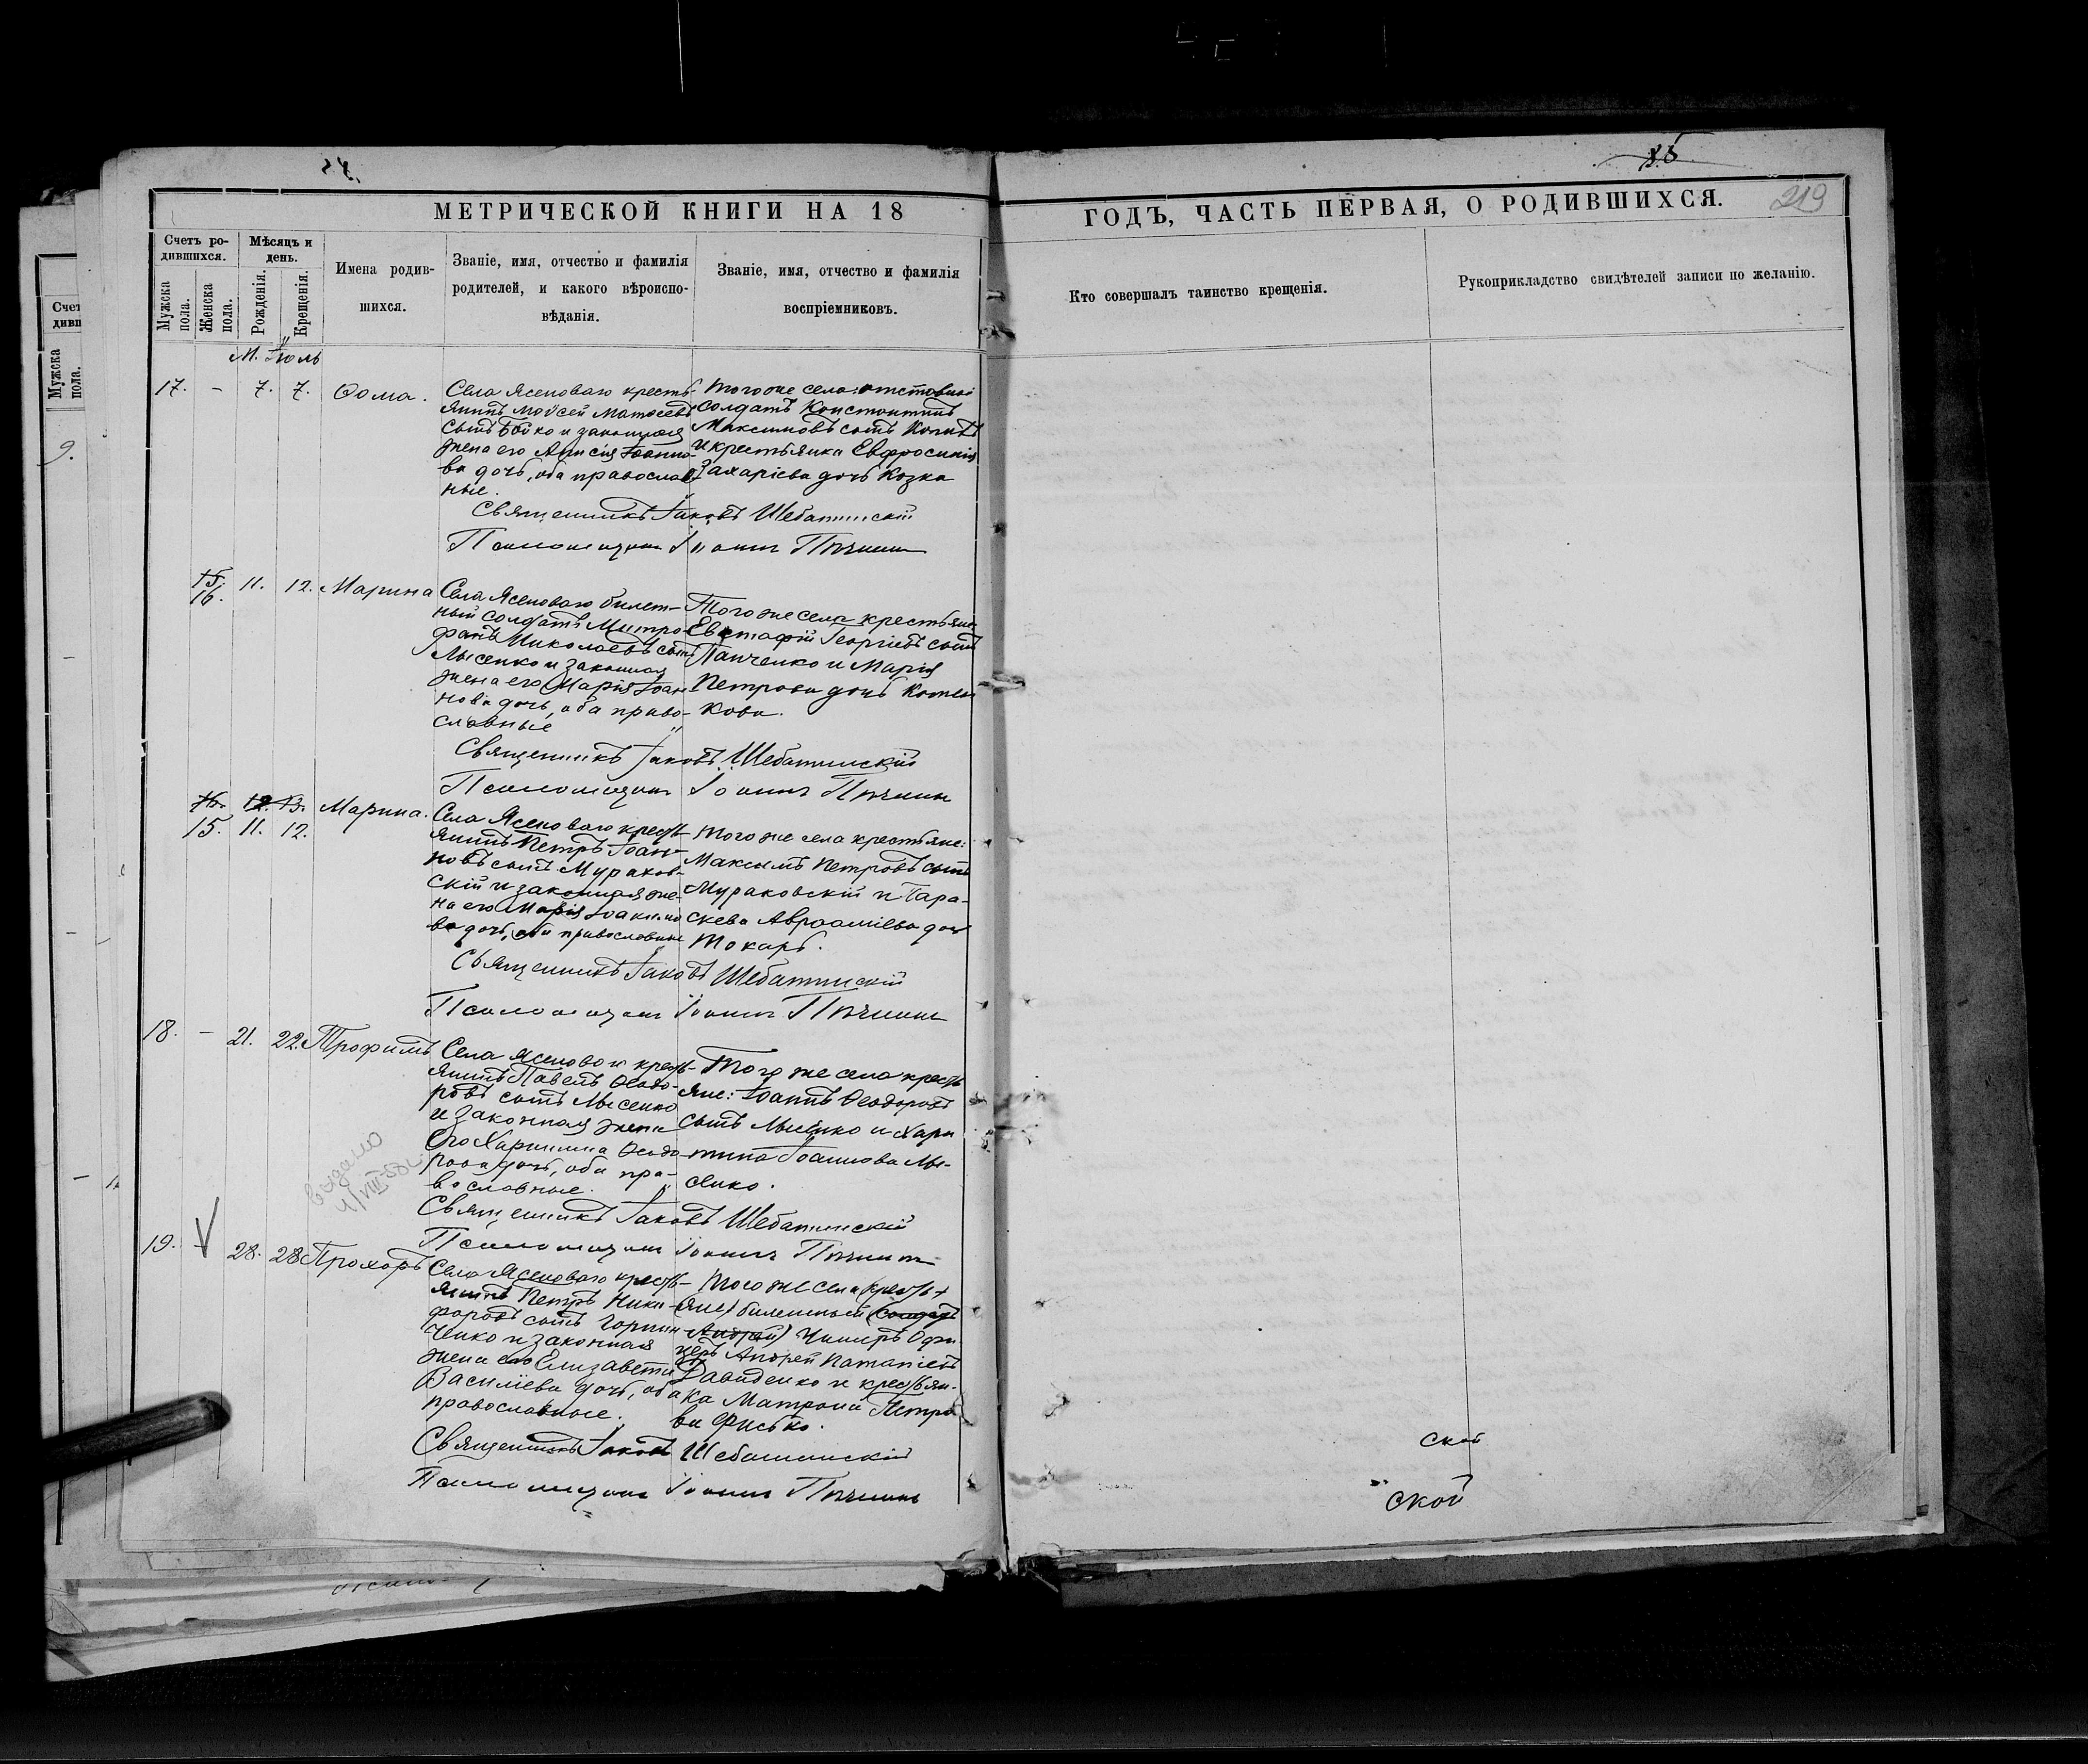 МЕТРИЧЕСКОЙ КНИГИ НА 18
ГОДЪ, ЧАСТЬ ПЕРВАЯ, О РОДИВШИХСЯ.
219
Счетъ ро-
дившихся.
Мужска пола.
Женска пола.
Мѣсяцъ и
день.
Рожденія.
Крещенія.
Имена родив-
шихся.
Званіе, имя, отчество и фамилія
родителей, и какого вѣроиспо-
вѣданія.
Званіе, имя, отчество и фамилія
воспріемниковъ.
Кто совершалъ таинство крещенія.
Рукоприкладство свидѣтелей записи по желанію.
М. Іюль
17. - 7. 7. Ѳома.
Села Ясеноваго кресть-
янинъ Моѵсей Матѳеевъ
сынъ Бойко и законная
жена его Анисія Іоанно-
ва дочь, оба православ-
ные.
Того же села: отставной
солдатъ Константинъ
Максимовъ сынъ
и крестьянка Евфросинія
Захаріева дочь Козка
Священникъ Іаковъ Шебатинскій
Псаломщикъ Іоаннъ
15.
16. 11. 12. Марина
Села Ясеноваго билет-
ный солдатъ Митро-
фанъ Николаевъ сынъ
Лысенко и законная
жена его Марія Іоан-
нова дочь, оба право-
славные
Того же села крестьяне
Евстафій Георгіевъ сынъ
Панченко и Марія
Петрова дочь Котен
кова.
Священникъ Іаковъ Шебатинскій
Псаломщикъ Іоаннъ
16. 12. 13. Марина.
15. 11. 12.
Села Ясеноваго кресть-
янинъ Петръ Іоан-
новъ сынъ Мураков-
скій и законная же-
на его Марія Іоакимо
ва дочь, оба православные
Того же села крестьяне:
Максимъ Петровъ сынъ
Мураковскій и Пара-
скева Авраамiева дочь
Токарь.
Священникъ Іаковъ Шебатинскій
Псаломщикъ Іоаннъ
18. - 21. 22. Трофимъ
Села Ясеноваго кресть-
янинъ Павелъ Ѳеодо-
ровъ сынъ Лысенко
и законная жена
его Харитина Ѳеодо-
рова дочь, оба пра-
вославные.
Того же села кресть
яне: Іоаннъ Ѳеодоровъ
сынъ Лысенко и Хари
тина Іоаннова Лы-
сенко.
Священникъ Іаковъ Шебатинскій
Псаломщикъ Іоаннъ
выдано
19. V 28. 28 Прохоръ
Села Ясеноваго кресть-
янинъ Петръ Ники-
форовъ сынъ Горпин
ченко и законная
жена его Елизавета
Василіева дочь, оба
православные.
Того же села (кресть+
яне) билетный (солдатъ
Андрей) Унтеръ Офи
церъ Андрей
Давиденко и крестьян-
ка Матрона Петро
ва Фисько.
Священникъ Іаковъ Шебатинскій
Псаломщикъ Іоаннъ
ской
ской